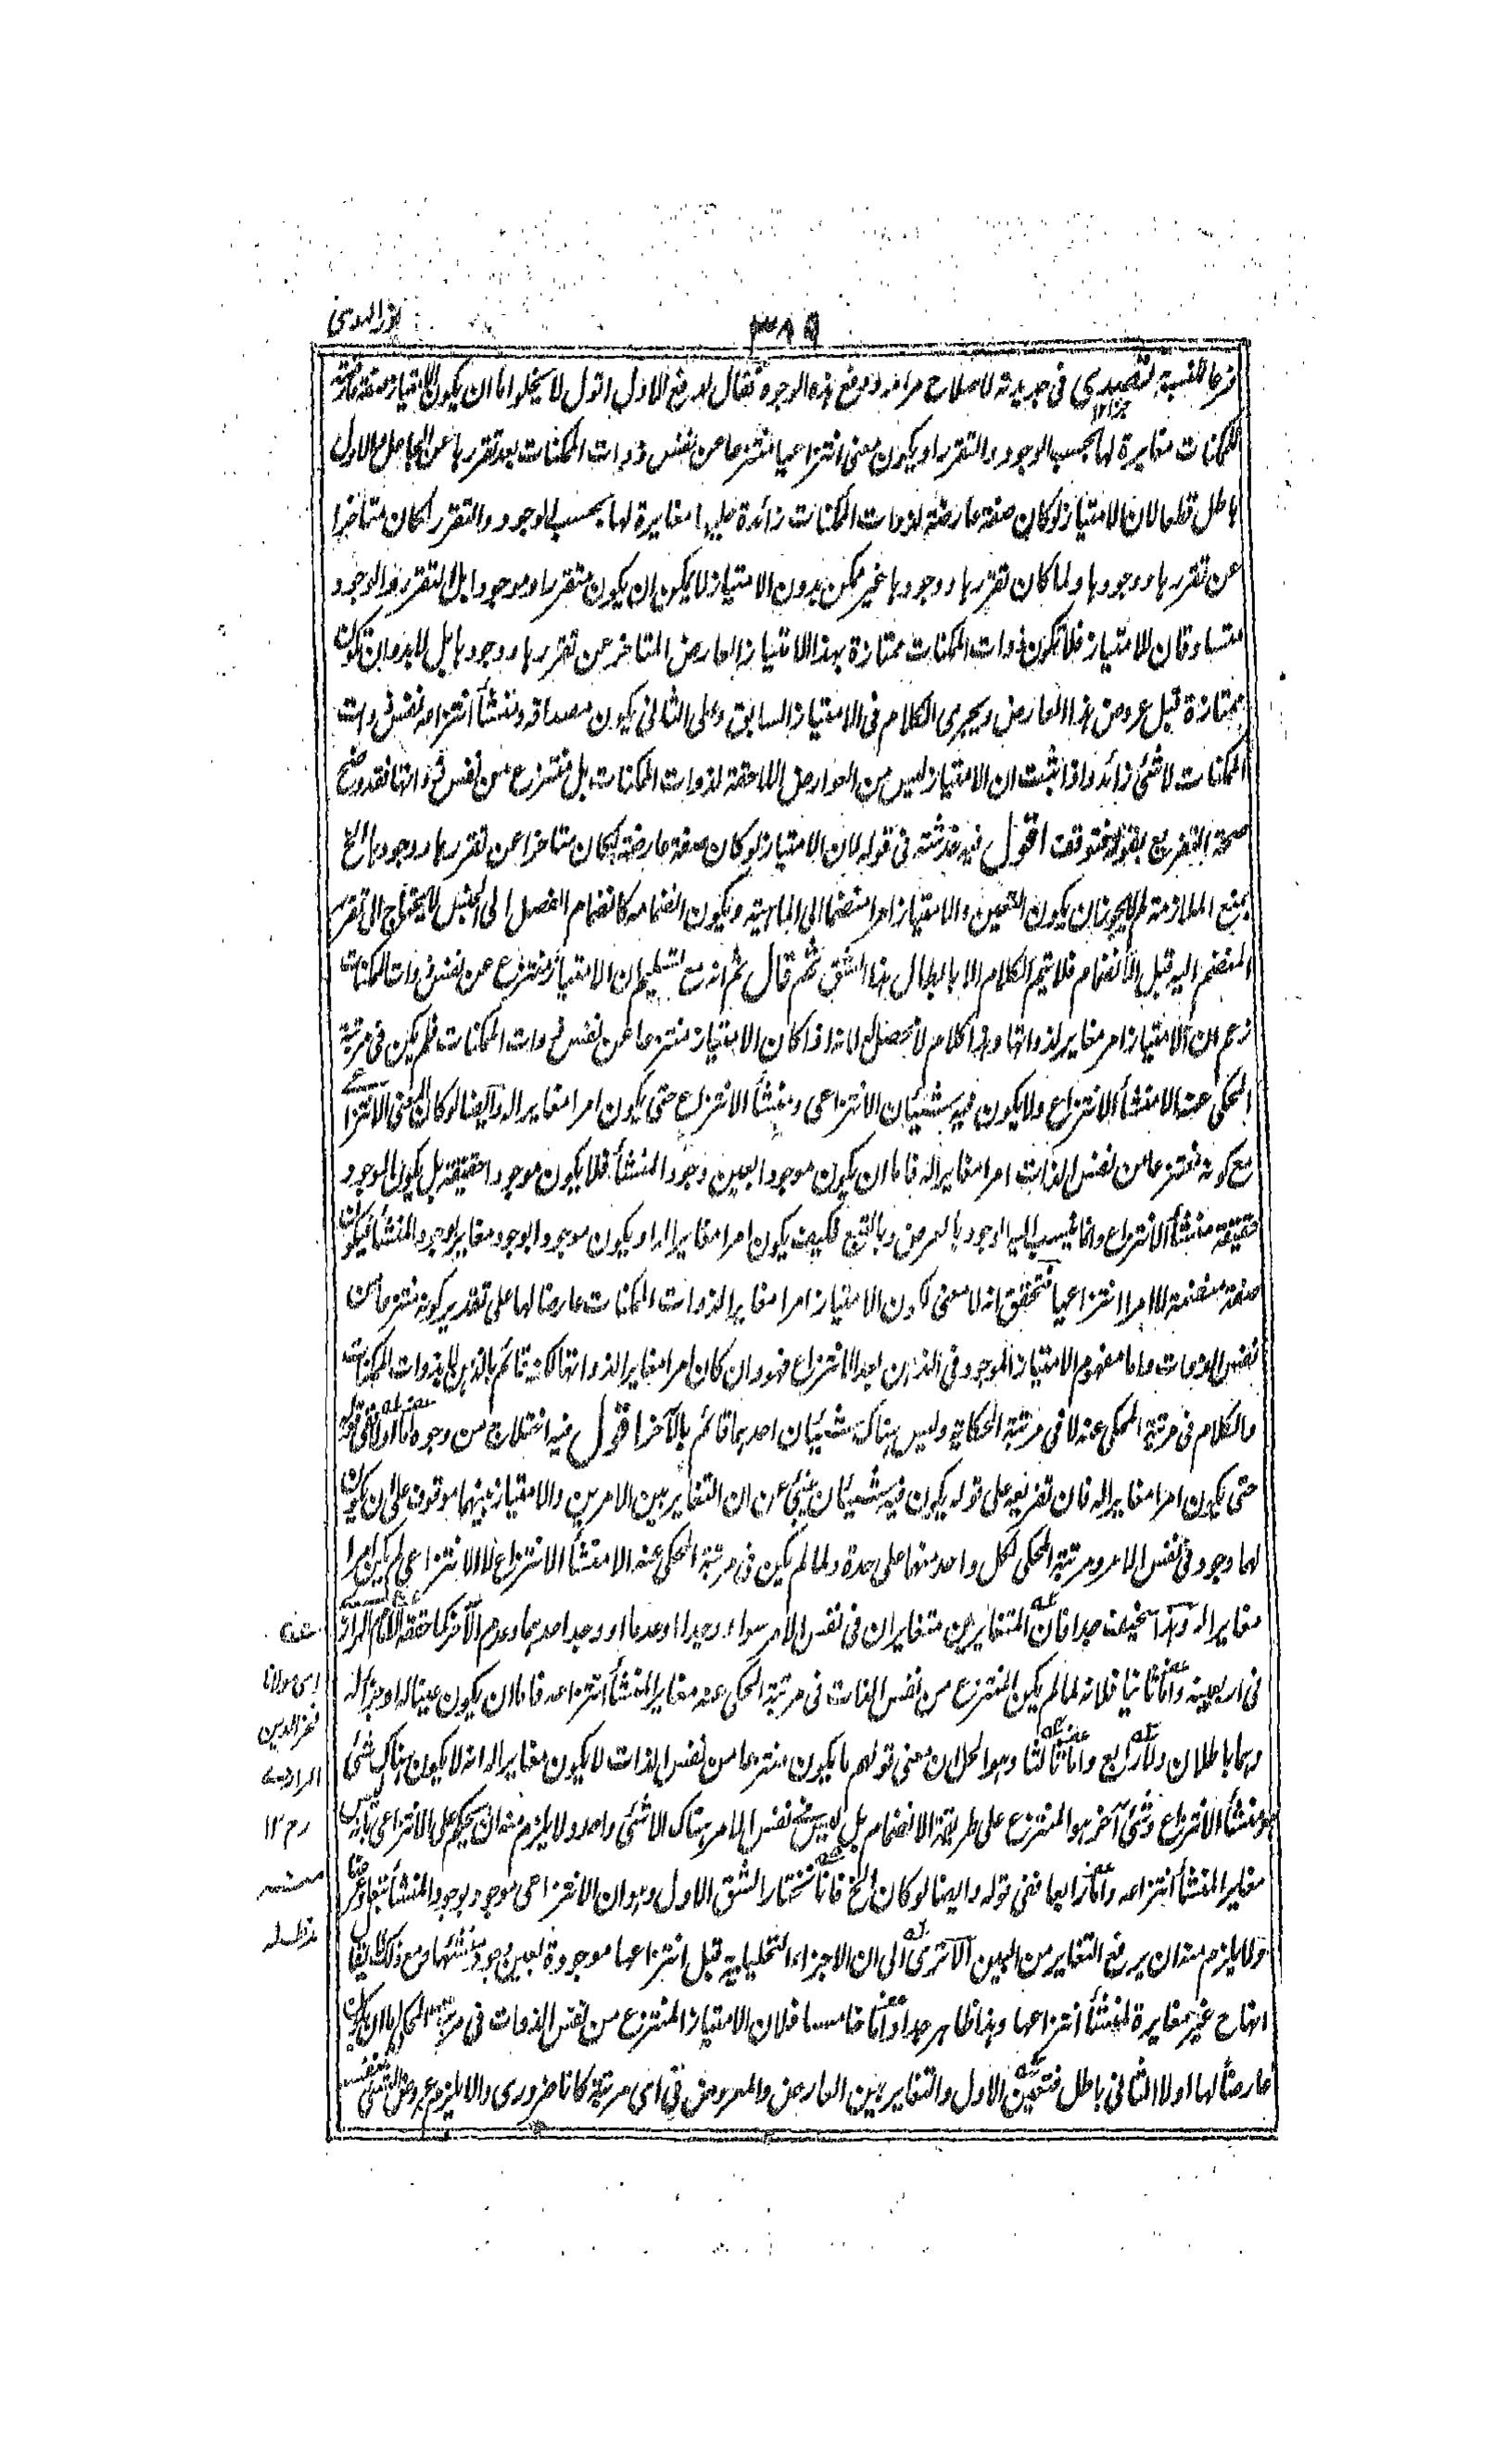 نور الهدى
٣٨٩
في جديدته لاصلاح مرامه ودفع هذه الوجوه فقال لدفع الاول اقول لا يخلو اما ان يكون الامتياز صفة قائمة
للمكنات مغايرة لها بحسب الوجود والتقرر او يكون معنى انتزاعيا منتزعا عن نفس ذوات الممكنات بعد تقررها عن الجاعل والاول
باطل قطعا لان الامتياز لو كان صفة عارضة لذوات الممكنات زائدة عليها مغايرة لها بحسب الوجود والتقرر لكان متاخرا
عن تقررها ووجودها ولما كان تقررها ووجودها غير ممكن بدون الامتياز لا يمكن ان يكون متقررا وموجودا بل التقرر والوجود
متساوقان للامتياز فلا تكون ذوات الممكنات ممتازة بهذا الامتياز العارض المتاخر عن تقررها ووجودها بل لابد وان تكون
ممتازة قبل عروض هذا العارض ويجري الكلام في الامتياز السابق وعلى الثاني يكون مصداقه ومنشأ انتزاعه نفس ذوات
الممكنات لا شئ زائد واذا ثبت ان الامتياز ليس من العوارض اللاحقة لذوات الممكنات بل منتزع من نفس ذواتها فقد وضح
صحة التفريع بقوله فتوقف اقول فيه خدشة في قوله لان الامتياز لو كان صفة عارضة لكان متاخرا عن تقررها ووجودها الخ
بمنع الملازمة لم لا يجوز ان يكون التعين والامتياز امرا منضما الى الماهية ويكون انضمامه كانضمام الفصل الى الجنس لا يحتاج الى تقرر
المنضم اليه قبل الانضمام فلا يتم الكلام الا بابطال هذا الشق ثم قال ثم انه مع تسليم ان الامتياز منتزع عن نفس ذوات الممكنات
زعم ان الامتياز امر مغاير لذواتها وهذا كلام لا محصل له لانه اذا كان الامتياز منتزعا عن نفس ذوات الممكنات فلم يكن في مرتبة
المحكى عنه الا منشأ الانتزاع ولا يكون فيه شيئان الانتزاعي ومنشأ الانتزاع حتى يكون امرا مغايرا له وايضا لو كان المعنى الانتزاعي
مع كونه منتزعا من نفس الذات امرا مغايرا له فاما ان يكون موجودا بعين وجود المنشأ فلا يكون موجودا حقيقة بل يكون الموجود
حقيقة منشأ الانتزاع وانما ينسب اليه الوجود بالعرض وبالتبع فكيف يكون امرا مغايرا له او يكون موجودا بوجود مغاير لوجود المنشأ فيكون
صفة منضمة لا امرا انتزاعيا فتحقق انه لا معنى لكون الامتياز امرا مغايرا لذوات الممكنات عارضا لها على تقدير كونه منتزعا من
نفس الذوات واما مفهوم الامتياز الموجود في الذهن بعد الانتزاع فهو وان كان امرا مغايرا لذواتها لكنه قائم بالذهن لا بذوات الممكنات
والكلام في مرتبة المحكى عنه لا في مرتبة الحكاية وليس هناك شيئان احدهما قائم بالآخر اقول فيه اختلاج من وجوه اما اولا ففي قوله
حتى يكون امرا مغايرا له فان تفريعه على قوله يكون فيه شيئان ينبئ عن ان التغاير بين الامرين والامتياز بينهما موقوف على ان يكون
لهما وجود في نفس الامر ومرتبة المحكى لكل واحد منهما على حدة ولما لم يكن في مرتبة المحكى عنه الا منشأ الانتزاع لا الانتزاعي لم يكن امرا
مغايرا له وهذا سخيف جدا فان المتغايرين متغايران في نفس الامر سواء وجدا او عدما او وجد احدهما وعدم الآخر كما حققه الامام الرازي
في اربعينه واما ثانيا فلانه لما لم يكن المنتزع من نفس الذات في مرتبة المحكى عنه مغايرا لمنشأ انتزاعه فاما ان يكون عينا له او جزأ له
وهما باطلان ولا رابع واما ثالثا وهو الحل ان معنى قولهم ما يكون منتزعا من نفس الذات لا يكون مغايرا له انه لا يكون هناك شئ
هو منشأ الانتزاع وشئ آخر هو المنتزع على طريقة الانضمام بل ليس في نفس الامر هناك الا شئ واحد ولا يلزم منه ان يحكم على الانتزاعي بانه ليس
مغايرا لمنشأ انتزاعه واما رابعا ففي قوله وايضا لو كان الخ فانا نختار الشق الاول وهو ان الانتزاعي موجود بوجود المنشأ تبعا وعرضا
ولا يلزم منه ان يرفع التغاير من البين الا ترى الى ان الاجزاء التحليلية قبل انتزاعها موجودة بعين وجود منشئها ومع ذلك
انها غير مغايرة لمنشأ انتزاعها وهذا ظاهر جدا واما خامسا فلان الامتياز المنتزع من نفس الذوات في مرتبة اما ان يكون
عارضا لها اولا الثاني باطل فتعين الاول والتغاير بين العارض والمعروض في اي مرتبة كانا ضروري والا يلزم عروض الشئ لنفسه
اى مولانا
فخر الدين
الرازي
رح ١٢
منه
مد ظله